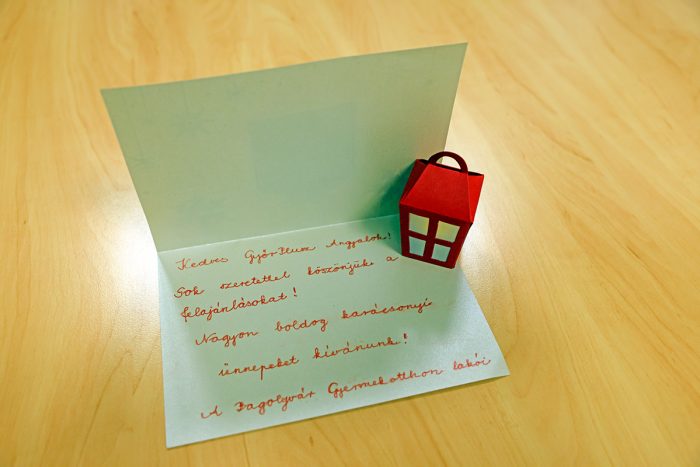 Kedves GyőrPlusz Angyalok!
Sok szeretettel köszönjük a
felajánlásokat!
Nagyon boldog karácsonyi
ünnepeket kívánunk!
A Bagolyvár Gyermekotthon lakói